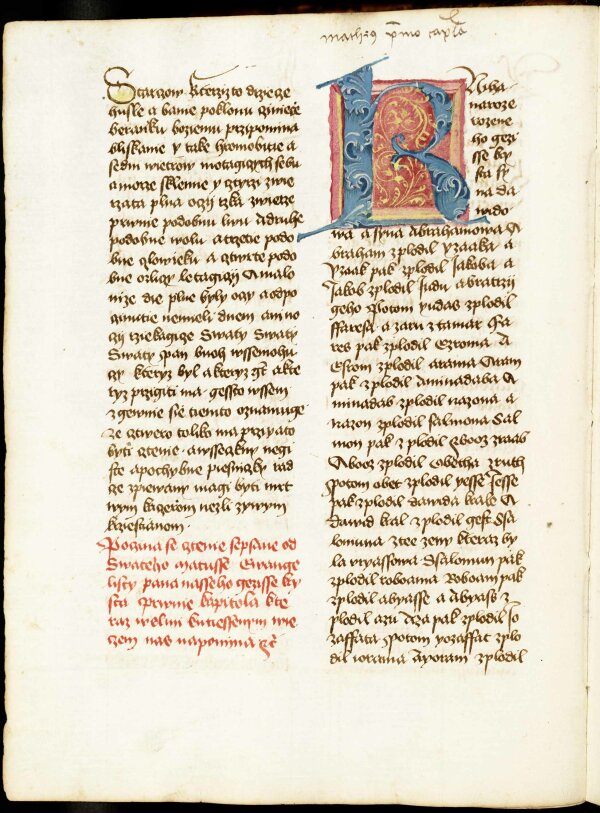 Matheus p̄mo capl̄a
Starzow kterzizto drzeze
husle a banie poklonu cziniecze
beranku boziemu przipomina
blyskanie y take hromobitie a
sedm wietrzow motagiczych sebu
a morze sklenne y cztyrzi zwie
rzata plna oczy tzka zwierze
prwnie podobnu lwu A druhe
podobne wolu a trzetie podo
bne czlowieku a cztwrte podo
bne orliczy letagiczy A malo
nize die plne byly oczy a odpo
czinutie nemieli dnem ani no
czy rziekagicze Swaty Swaty
Swaty pan buoh wssemohu
czy kteryz byl a kteryz gt̄ a kte
ryz przigiti ma gessto wssem
zgewnie sie tiemto oznamuge
ze cztwero toliko ma przyyato
byti cztenie a wssegkny negi
ste apochybne piesniczky rad
ge zpiewany magi byti mrt
wym kaczerom nezli zywym
krziestianom
Poczina se cztenie sepsane od
Swateho Matusse Ewange
listy pana nasseho gezisse kry
sta Prwnie kapitola kte
raz welmi butiessenym wie
czem nas napomina gt̄
Kniha
naroze
rozene
ho gezy
sse kry
sta sy
na da
wido
wa a syna Abrahamowa A
braham zplodil Yzaaka A
Yzaak pak zplodil Jakoba A
Jakob zplodil Judu a bratrzij
geho Potom yudas zplodil
ffaresa a zaru z tamar Fa
res pak zplodil Ezroma A
Esrom zplodil arama Aram
pak zplodil Aminadaba A
minadab zplodil nazona A
nazon zplodil salmona Sal
mon pak zplodil Booz z raab
A booz zplodil Obetha z ruth
Potom obet zplodil yesse Jesse
pak zplodil dawida krale A
dawid kral zplodil gest Ssa
lomuna z tee zeny kteraz by
la uryassowa Ssalomun pak
zplodil roboama Roboam pak
zplodil abyasse A Abyass z
plodil azu Aza pak zplodil Jo
zaffata Potom yozaffat zplo
dil iorama A yoram zplodil